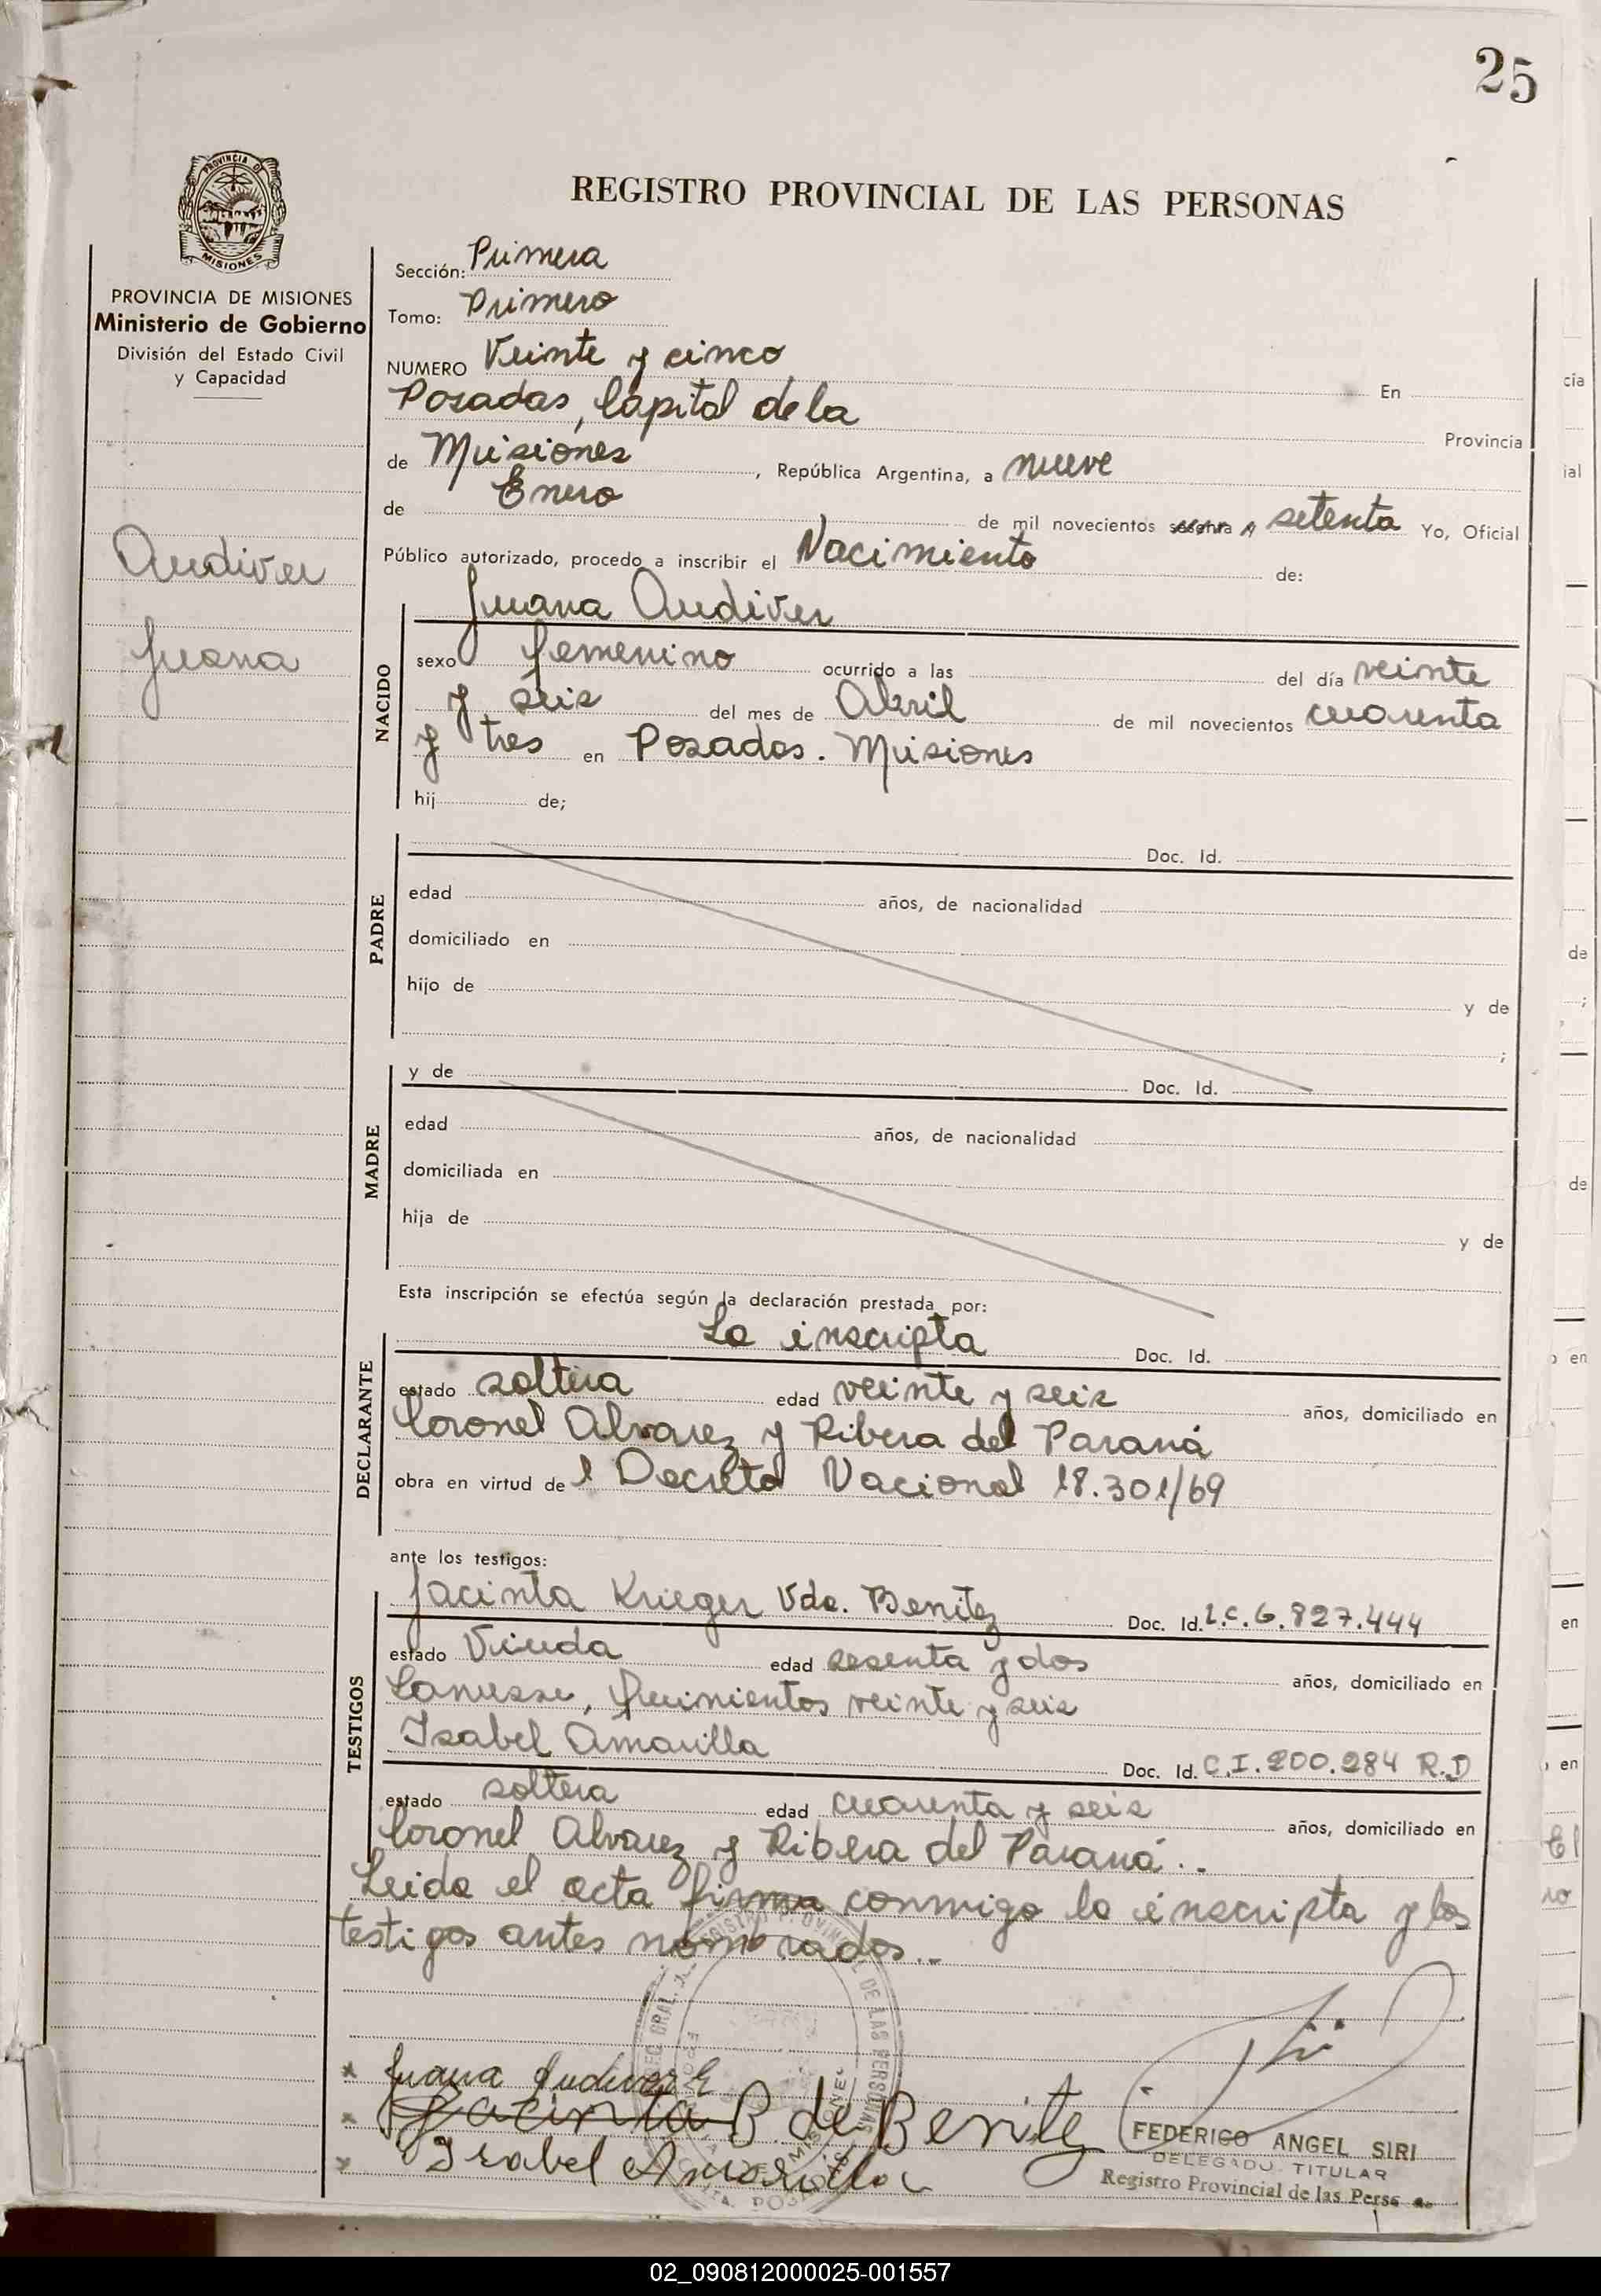 25
PROVINCIA DE
MISIONES
REGISTRO PROVINCIAL DE LAS PERSONAS
PROVINCIA DE MISIONES
Ministerio de Gobierno
División del Estado Civil
y Capacidad
Audiver
Juana
Sección: Primera
Tomo: Primero
NUMERO Veinte y cinco En
Posadas, Capital de la Provincia
de Misiones, República Argentina, a nueve
de Enero de mil novecientos setenta Yo, Oficial
Público autorizado, procedo a inscribir el Nacimiento de:
Juana Audiver
NACIDO
sexo femenino ocurrido a las del día veinte
y seis del mes de Abril de mil novecientos cuarenta
y tres en Posadas. Misiones
hij de;
PADRE
Doc. Id.
edad años, de nacionalidad
domiciliado en
hijo de y de
;
MADRE
y de Doc. Id.
edad años, de nacionalidad
domiciliada en
hija de y de
Esta inscripción se efectúa según la declaración prestada por:
DECLARANTE
La inscripta Doc. Id.
estado soltera edad veinte y seis años, domiciliado en
Coronel Alvarez y Ribera del Paraná
obra en virtud de l Decreto Nacional 18.301/69
ante los testigos:
TESTIGOS
Jacinta Krieger Vda. Benitez Doc. Id. L.C. 6.827.444
estado Viuda edad sesenta y dos años, domiciliado en
Lanusse, Quinientos veinte y seis
Isabel Amarilla Doc. Id. C.I. 200.284 R.D
estado soltera edad cuarenta y seis años, domiciliado en
Coronel Alvarez y Ribera del Paraná..
Leida el acta firma conmigo la inscripta y los
testigos antes nombrados..
x Juana Audiver E
x Jacinta B de Benitez
x Isabel Amarilla
FEDERICO ANGEL SIRI
DELEGADO TITULAR
Registro Provincial de las Perso
02_090812000025-001557